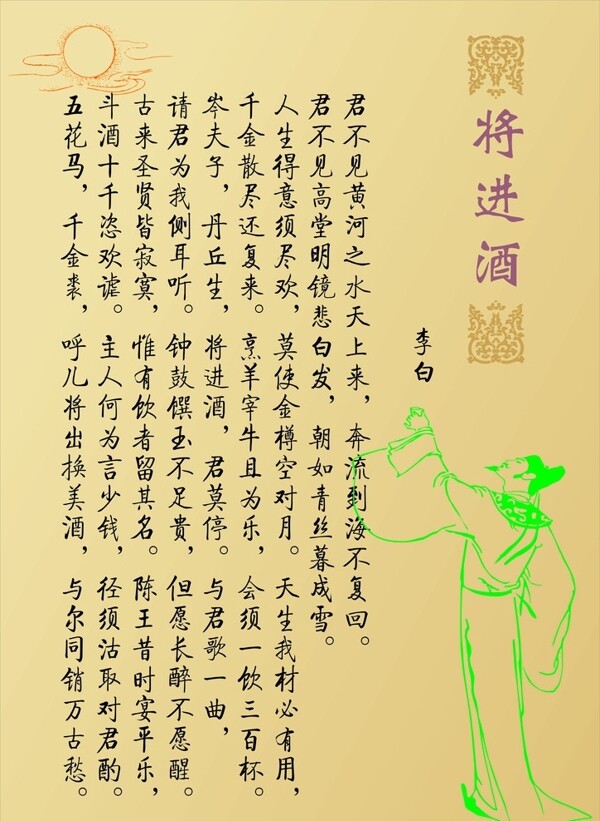 将进酒
李白
君不见黄河之水天上来，奔流到海不复回。
君不见高堂明镜悲白发，朝如青丝暮成雪。
人生得意须尽欢，莫使金樽空对月。天生我材必有用，
千金散尽还复来。烹羊宰牛且为乐，会须一饮三百杯。
岑夫子，丹丘生，将进酒，君莫停。与君歌一曲，
请君为我侧耳听。钟鼓馔玉不足贵，但愿长醉不愿醒。
古来圣贤皆寂寞，惟有饮者留其名。陈王昔时宴平乐，
斗酒十千恣欢谑。主人何为言少钱，径须沽取对君酌。
五花马，千金裘，呼儿将出换美酒，与尔同销万古愁。